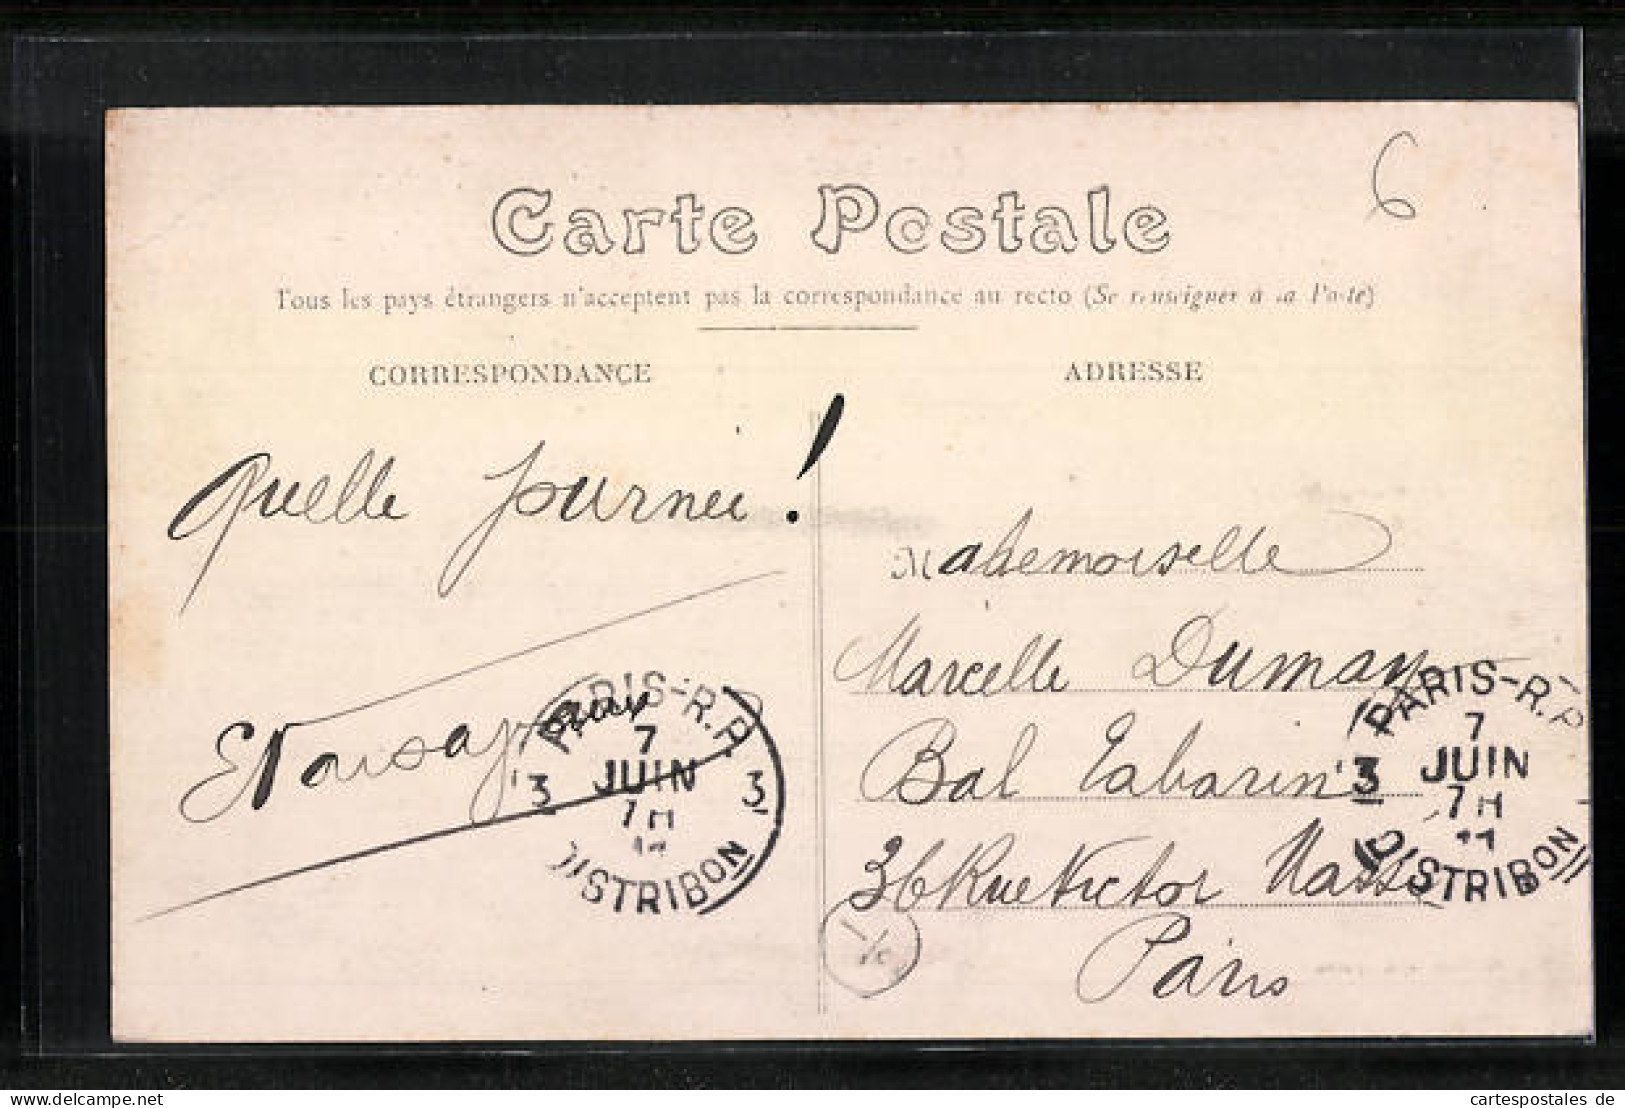 6
Carte Postale
Tous les pays étrangers n'acceptent pas la correspondance au recto (Se renseigner à la Poste)
CORRESPONDANCE
ADRESSE
Quelle journée!
Mademoiselle
Marcelle Dumay
Bal Tabarin
36 Rue Victor Massé
Paris
PARIS-R.P.
3 7 3
JUIN
7H
11
DISTRIBON
PARIS-R.P.
3 7
JUIN
7H
11
DISTRIBON
cartespostales.de